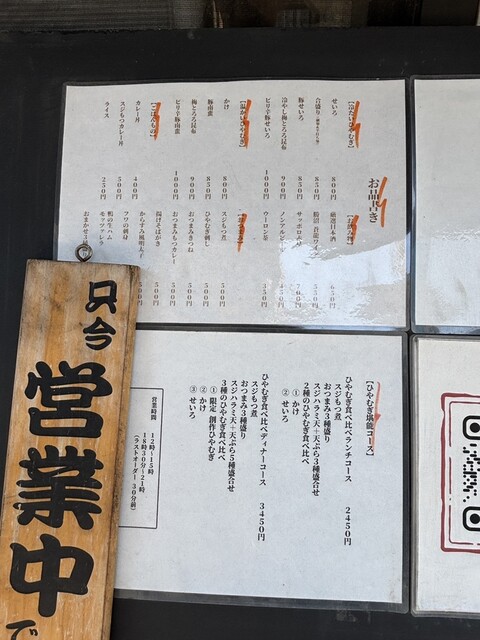 お品書き
【冷たいひやむぎ】
せいろ 800円
豚せいろ 850円
冷やし梅とろろ昆布 900円
ピリ辛豚せいろ 1000円
【温かいひやむぎ】
かけ 800円
豚南蛮 850円
梅とろろ昆布 900円
ピリ辛豚南蛮 1000円
【ごはんもの】
カレー丼 400円
スジもつカレー丼
ライス 250円
厳選日本酒 650円
ウーロン茶 350円
スジもつ煮 500円
ひやむぎ刺し 500円
おつまみきつね
おつまみもつカレー
揚げそばがき
からすみ風明太子
フワの刺身
鴨の生ハム
【ひやむぎ堪能コース】
ひやむぎ食べ比べランチコース 2450円
スジもつ煮
おつまみ3種盛り
スジハラミ天+天ぷら3種盛合せ
2種のひやむぎ食べ比べ
①かけ
②せいろ
ひやむぎ食べ比べディナーコース 3450円
スジもつ煮
おつまみ3種盛り
スジハラミ天+天ぷら5種盛合せ
3種のひやむぎ食べ比べ
①限定 創作ひやむぎ
②かけ
③せいろ
営業時間
12時~15時
18時30分~21時
(ラストオーダー30分前)
只今
営業中
で